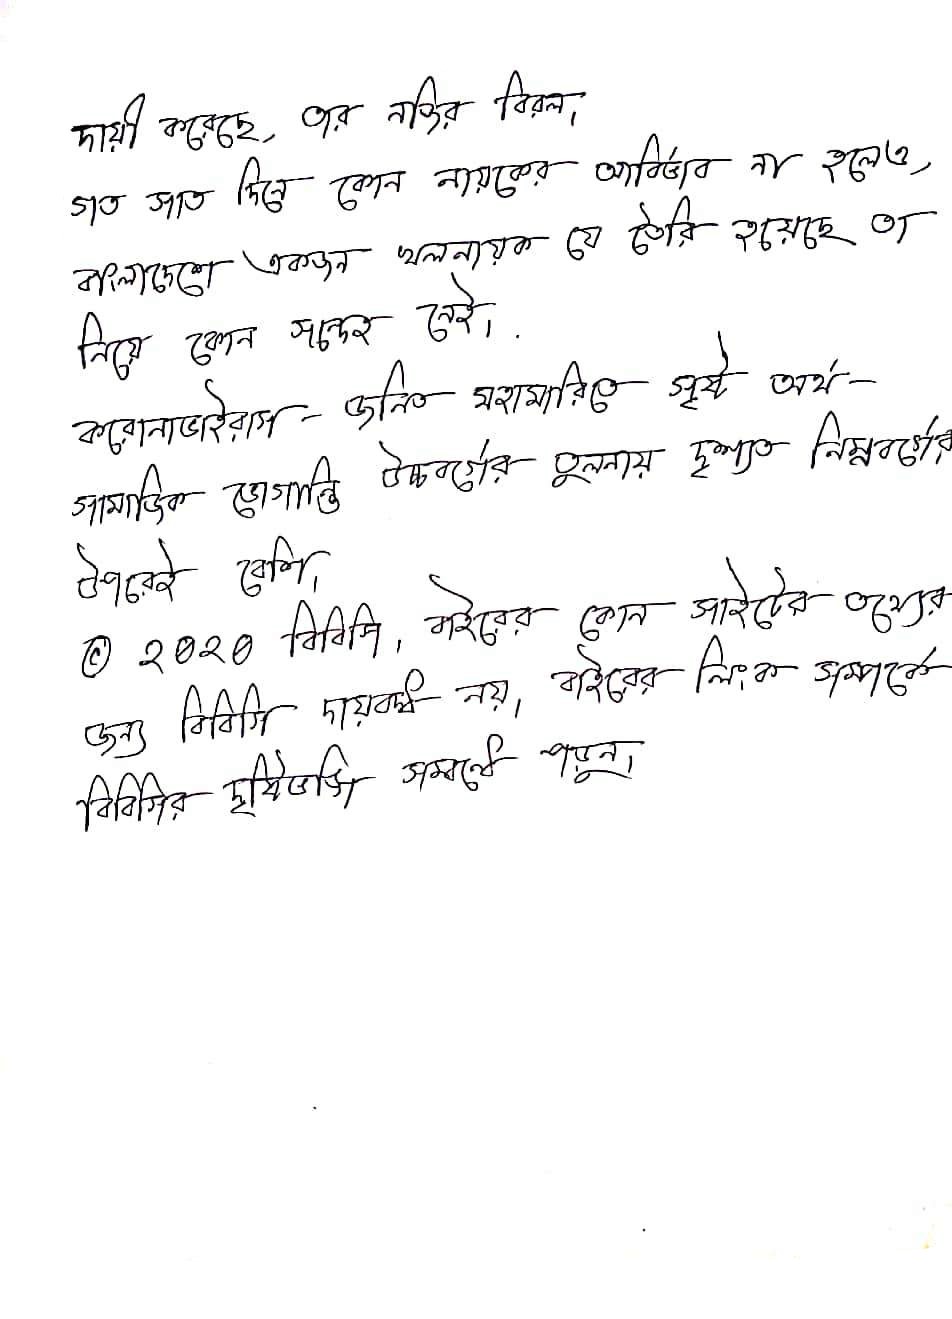 দায়ী করেছে, তার নজির বিরল।
গত সাত দিনে কোন নায়কের আবির্ভাব না হলেও,
বাংলাদেশে একজন খলনায়ক যে তৈরি হয়েছে তা
নিয়ে কোন সন্দেহ নেই।
করোনাভাইরাস - জনিত মহামারিতে সৃষ্ট অর্থ -
সামাজিক ভোগান্তি উচ্চবর্গের তুলনায় দৃশ্যত নিম্নবর্গের
উপরেই বেশি।
© ২০২০ বিবিসি। বাইরের কোন সাইটের তথ্যের
জন্য বিবিসি দায়বদ্ধ নয়। বাইরের লিংক সম্পর্কে
বিবিসির দৃষ্টিভঙ্গি সম্বন্ধে পড়ুন।